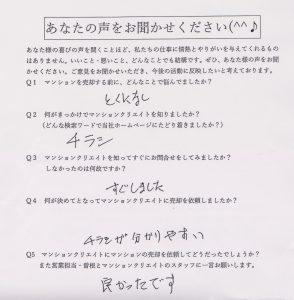 あなたの声をお聞かせください(^^♪
あなた様の喜びの声を聞くことほど、私たちの仕事に情熱とやりがいを与えてくれるもの
はありません。いいこと・悪いこと、どんなことでも結構です。ぜひ、あなた様の声をお聞
かせください。ご意見をお聞かせいただき、今後の活動に反映したいと考えております。
Q1 マンションを売却する前に、どんなことで悩んでましたか？
とくになし
Q2 何がきっかけでマンションクリエイトを知りましたか？
(どんな検索ワードで当社ホームページにたどり着きましたか？)
チラシ
Q3 マンションクリエイトを知ってすぐにお問合せをしてみましたか？
しなかったのは何故ですか？
すぐしました
Q4 何が決めてとなってマンションクリエイトに売却を依頼しましたか？
チラシが分かりやすい
Q5 マンションクリエイトにマンションの売却を依頼してどうだったでしょうか？
また営業担当・曽根とマンションクリエイトのスタッフに一言お願いします。
良かったです